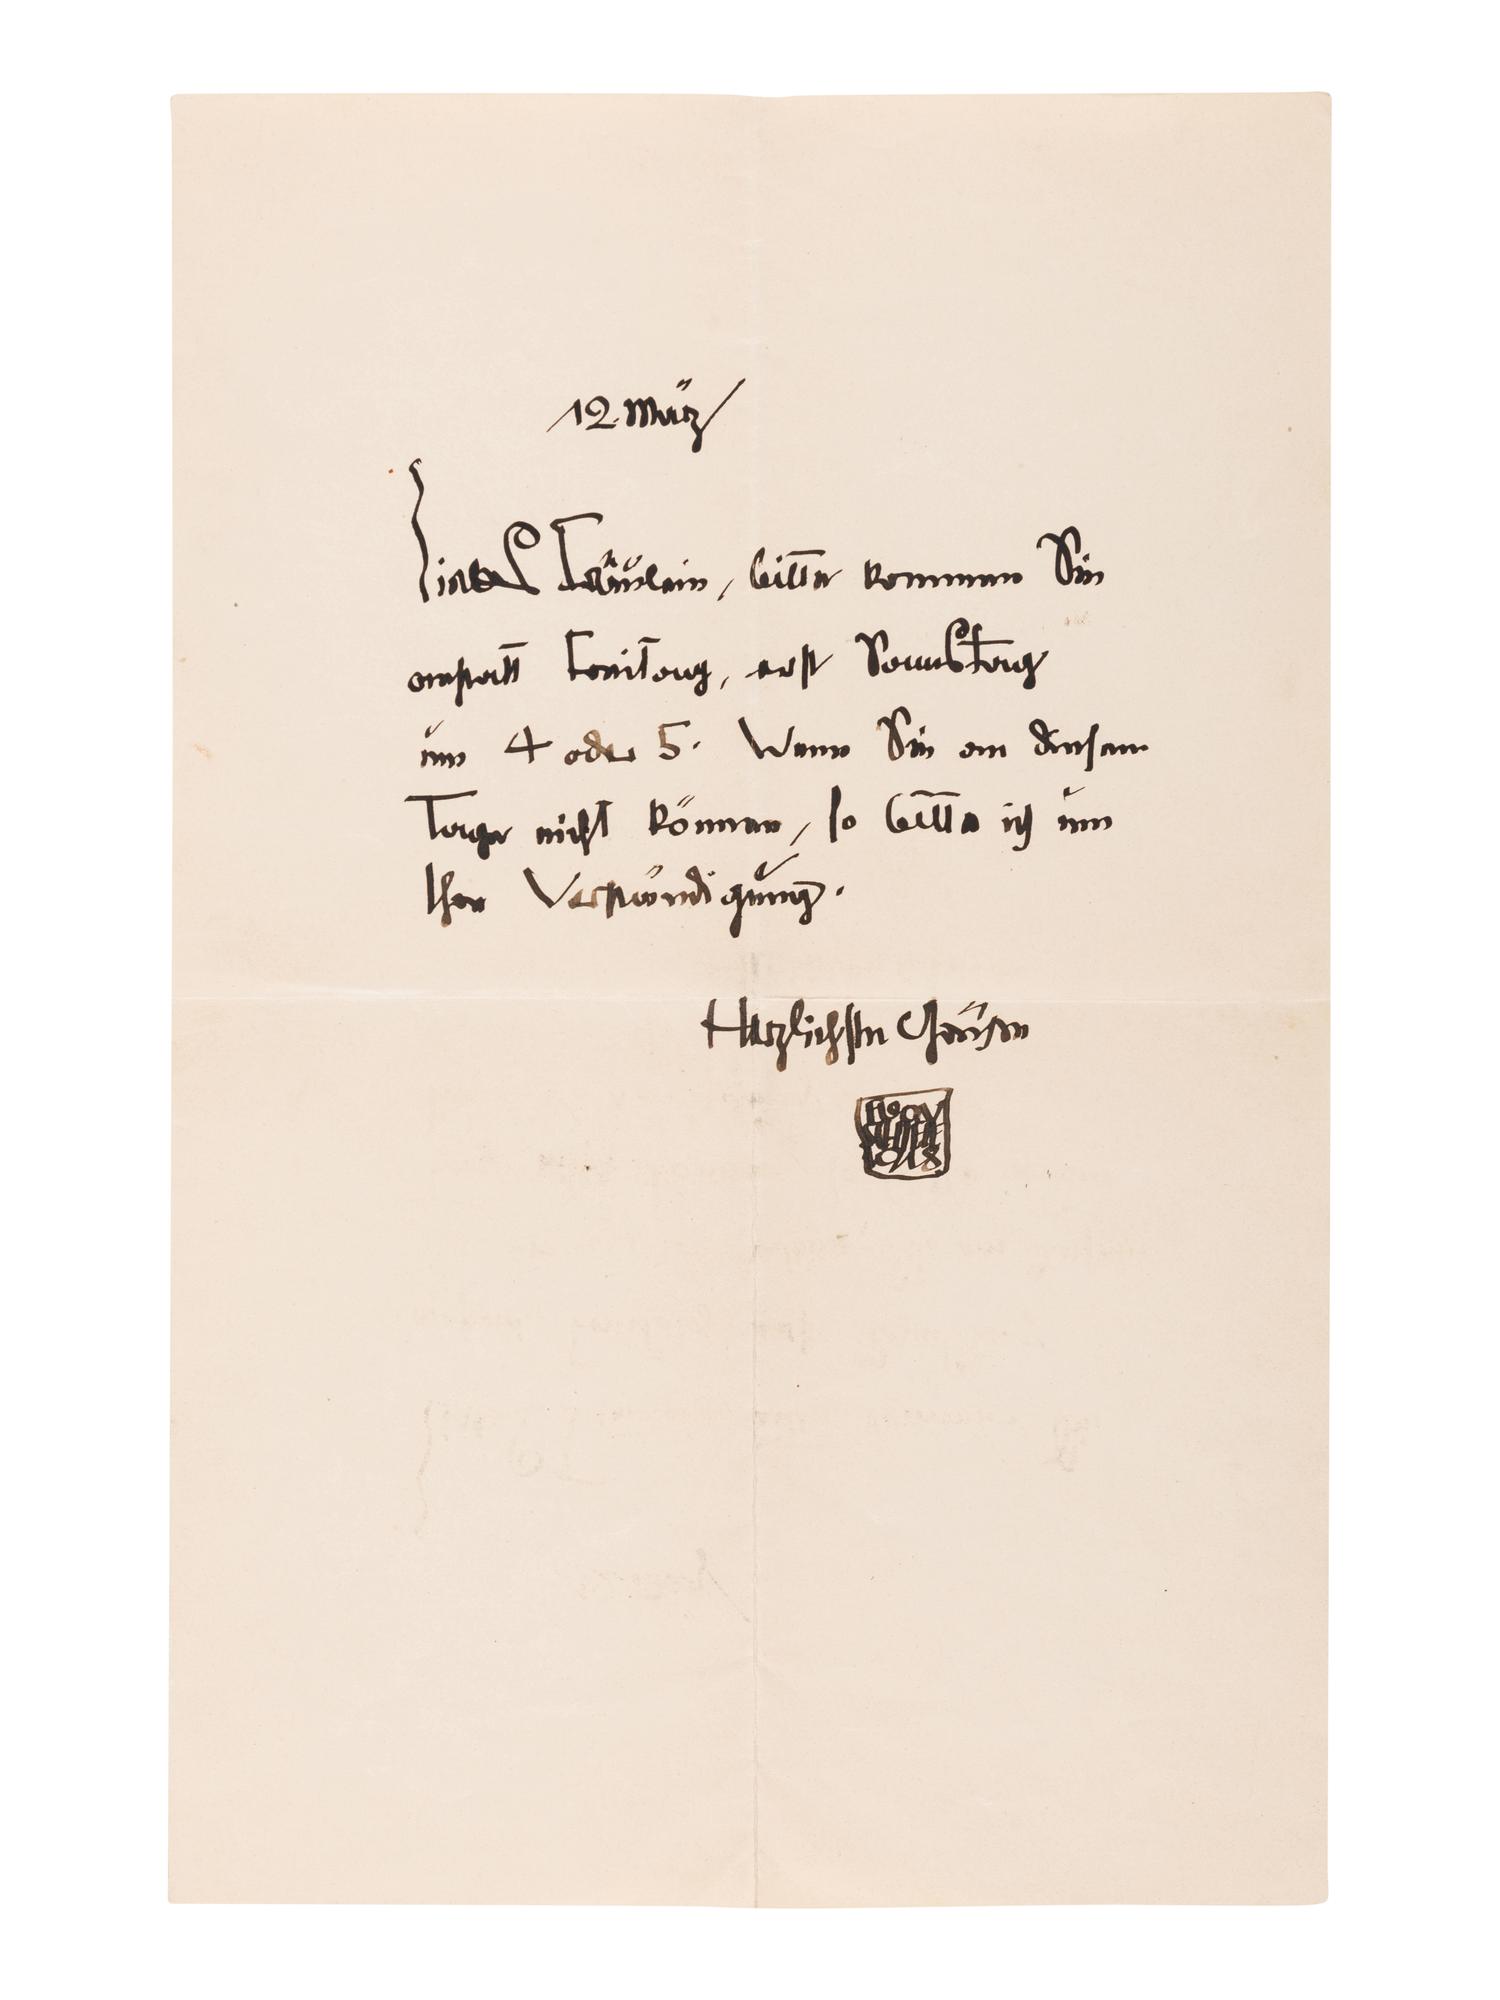 12. März
Liebes Fräulein, bitte kommen Sie
anstatt Freitag, erst Samstag
um 4 oder 5. Wenn Sie an diesem
Tage nicht können, so bitte ich um
Ihre Verständigung.
Herzlichste Grüsse
EGON
SCHIELE
1918.